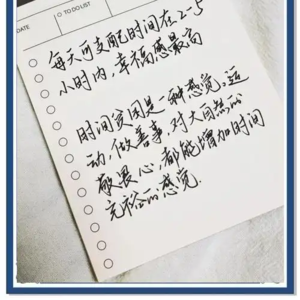 DATE
TO DO LIST
每天可支配时间在2-5
小时内，幸福感最高
时间贫困是一种感觉，运
动，做善事，对大自然的
敬畏心，都能增加时间
充裕的感觉.